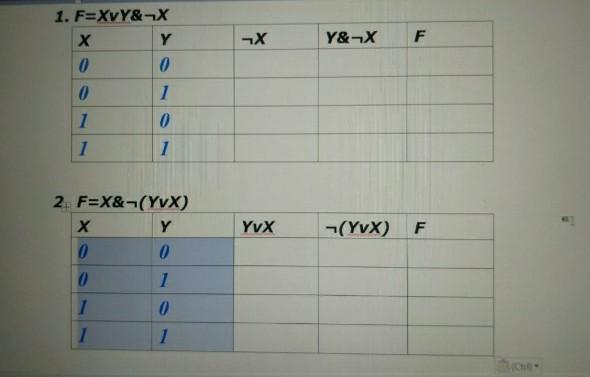 1. F=XvY&¬X
X Y ¬X Y&¬X F
0 0
0 1
1 0
1 1
2. F=X&¬(YvX)
X Y YvX ¬(YvX) F
0 0
0 1
1 0
1 1
(Ctrl)